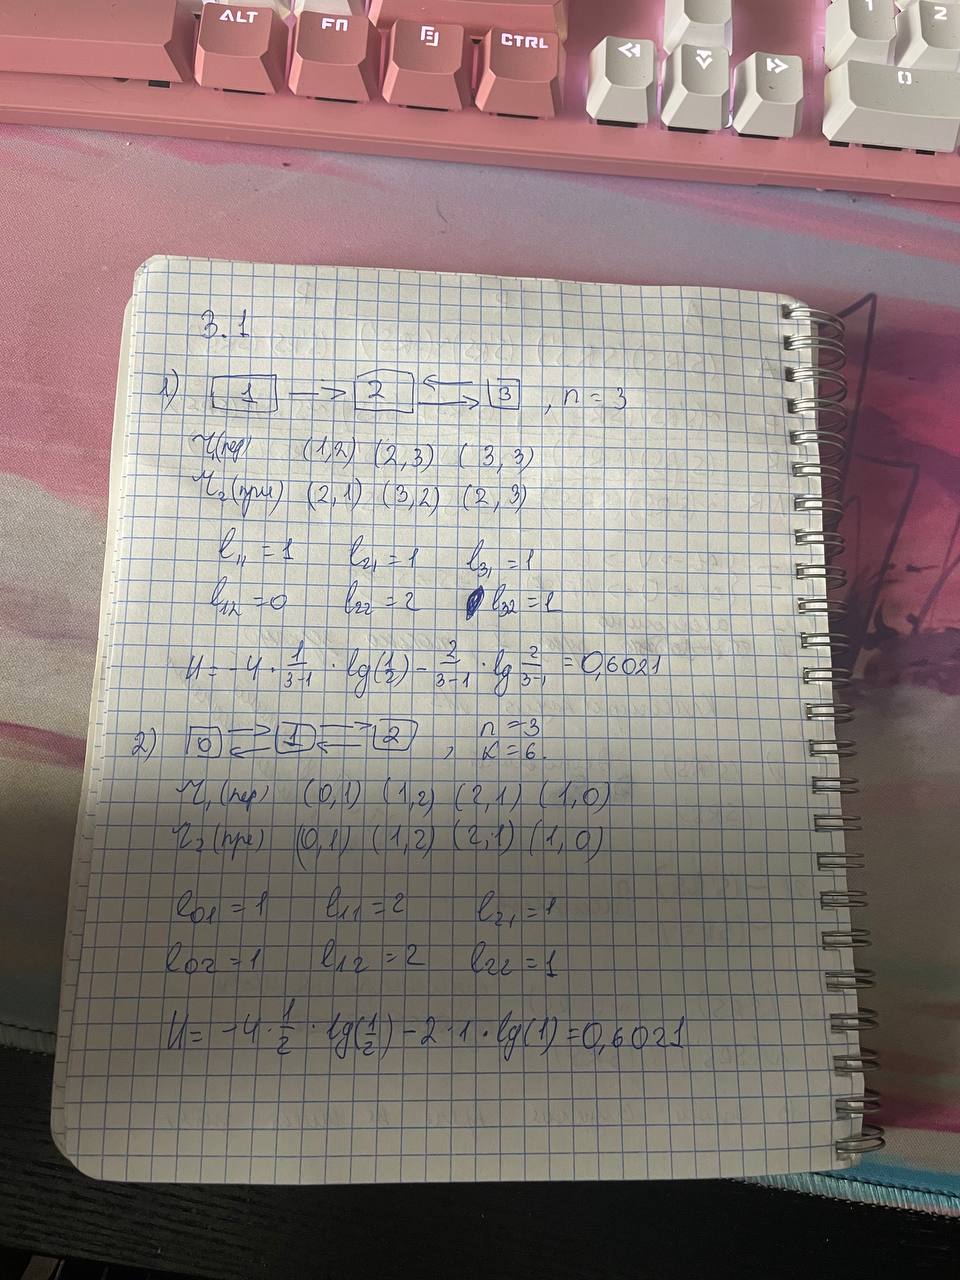 ALT FN CTRL
1 2
3.1
1) 1 → 2 ⇄ 3 , n = 3
r₁(пер) (1,2) (2,3) (3,3)
r₂(при) (2,1) (3,2) (2,3)
l₁₁ = 1 l₂₁ = 1 l₃₁ = 1
l₁₂ = 0 l₂₂ = 2 l₃₂ = 1
H = -4 · 1/(3-1) · lg(1/2) - 2/(3-1) · lg 2/(3-1) = 0,6021
2) 0 ⇄ 1 ⇄ 2 , n = 3
K = 6.
r₁(пер) (0,1) (1,2) (2,1) (1,0)
r₂(пре) (0,1) (1,2) (2,1) (1,0)
l₀₁ = 1 l₁₁ = 2 l₂₁ = 1
l₀₂ = 1 l₁₂ = 2 l₂₂ = 1
H = -4 · 1/2 · lg(1/2) - 2 · 1 · lg(1) = 0,6021